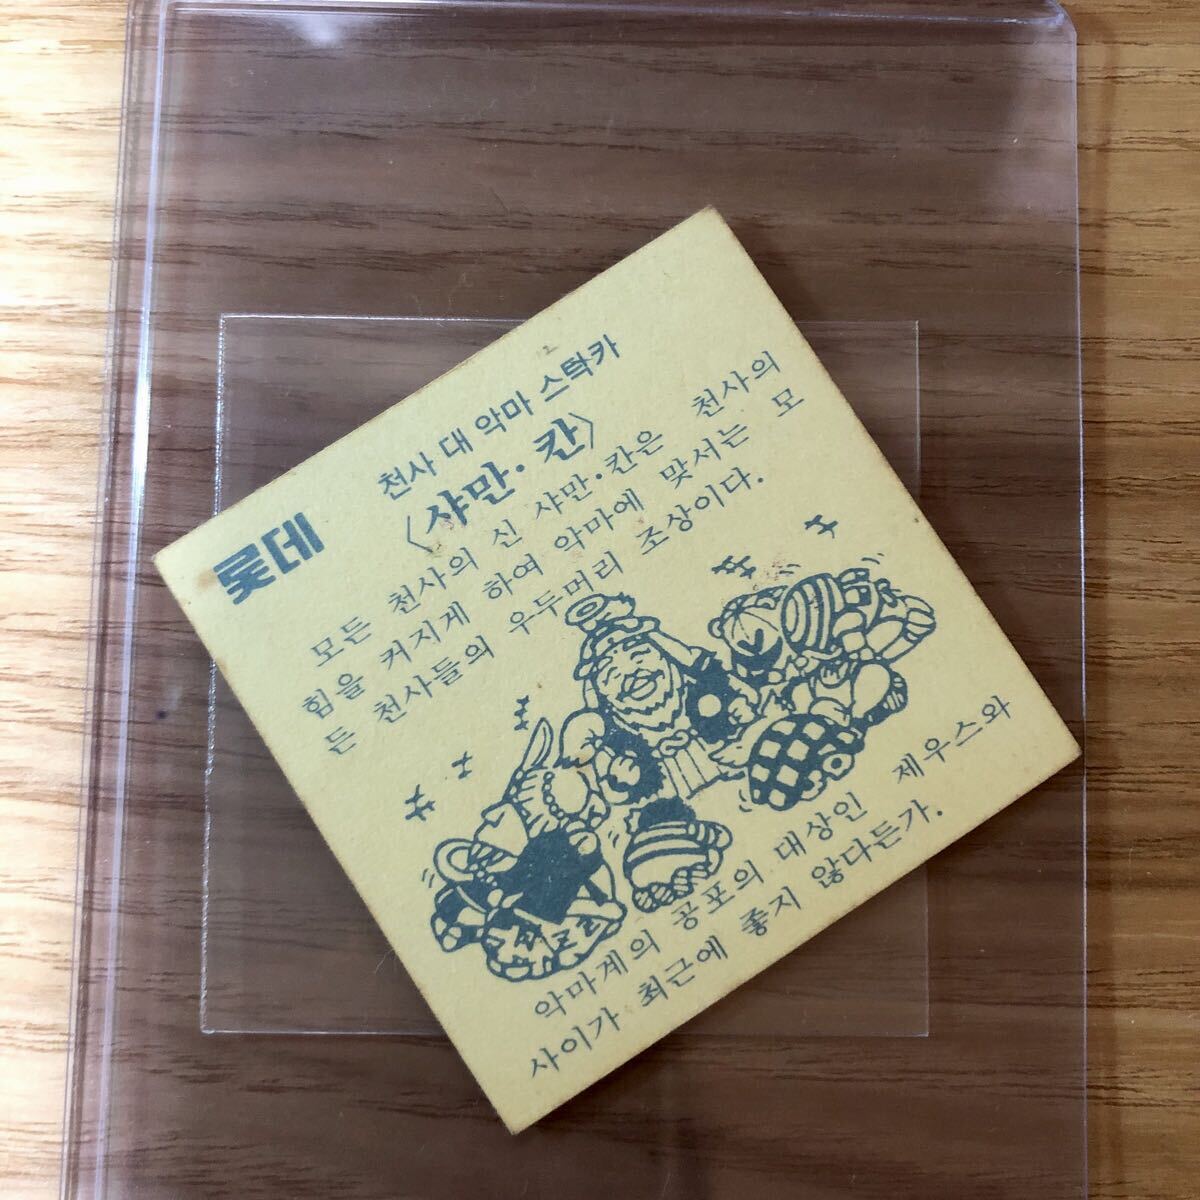 천사 대 악마 스탁카
롯데
〈샤만·칸〉
모든 천사의 신 샤만·칸은 천사의
힘을 커지게 하여 악마에 맞서는 모
든 천사들의 우두머리 조상이다.
악마계의 공포의 대상인 제우스와
사이가 최근에 좋지 않다든가.